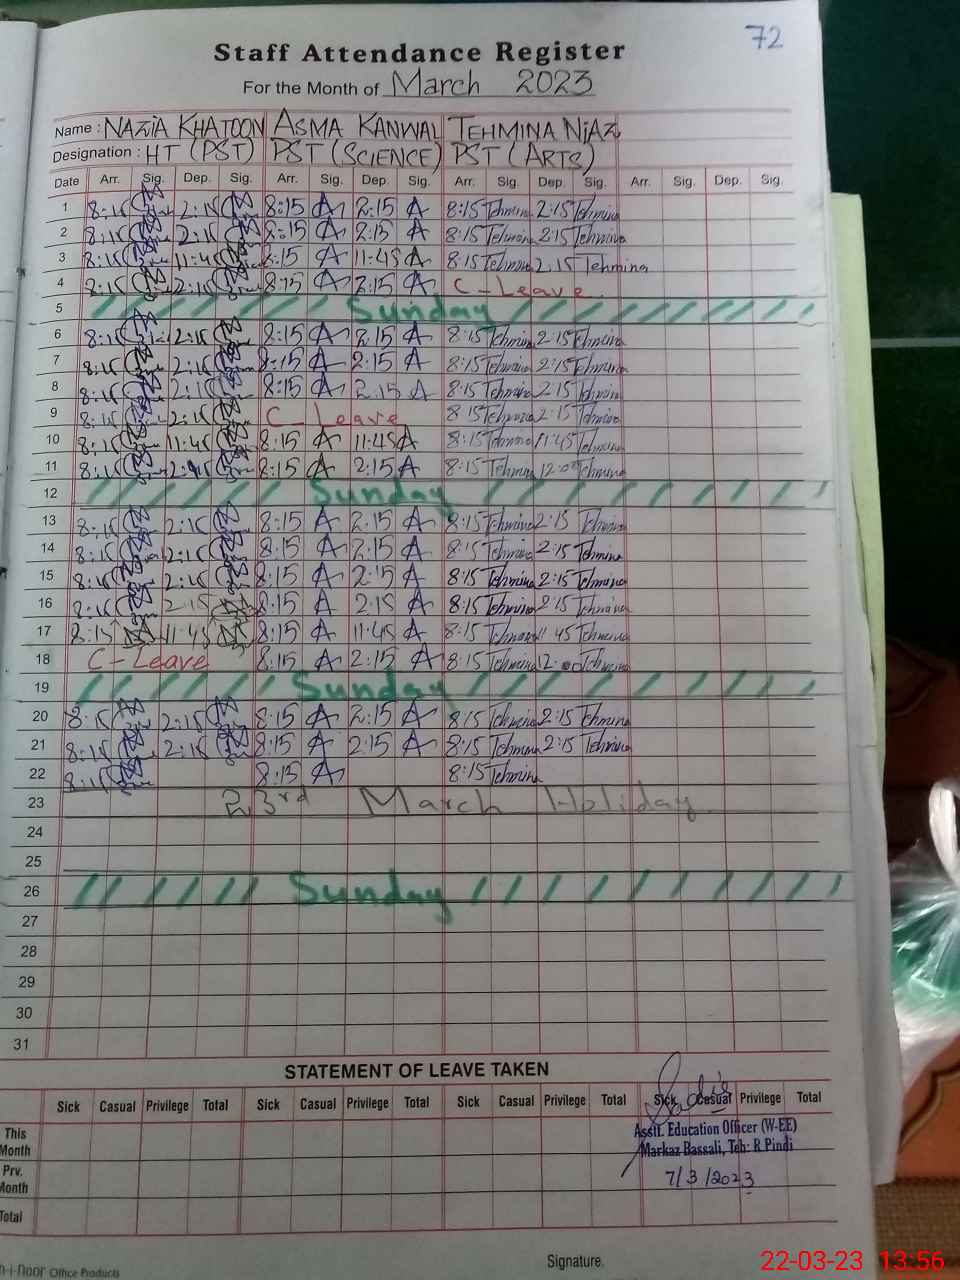 72
Staff Attendance Register
For the Month of March 2023
Name : NAZIA KHATOON ASMA KANWAL TEHMINA NIAZ
Designation : HT (PST) PST (SCIENCE) PST (ARTS)
Date Arr. Sig. Dep. Sig. Arr. Sig. Dep. Sig. Arr. Sig. Dep. Sig. Arr. Sig. Dep. Sig.
1 8:15 2:15 8:15 A 2:15 A 8:15 Tehmina 2:15 Tehmina
2 8:15 2:15 8:15 A 2:15 A 8:15 Tehmina 2:15 Tehmina
3 8:15 11:45 8:15 A 11:45 A 8:15 Tehmina 2:15 Tehmina
4 8:15 2:15 8:15 A 2:15 A C - Leave
5 Sunday
6 8:15 2:15 8:15 A 2:15 A 8:15 Tehmina 2:15 Tehmina
7 8:15 2:15 8:15 A 2:15 A 8:15 Tehmina 2:15 Tehmina
8 8:15 2:15 8:15 A 2:15 A 8:15 Tehmina 2:15 Tehmina
9 8:15 2:15 C - Leave 8:15 Tehmina 2:15 Tehmina
10 8:15 11:45 8:15 A 11:45 A 8:15 Tehmina 11:45 Tehmina
11 8:15 2:15 8:15 A 2:15 A 8:15 Tehmina Tehmina
12 Sunday
13 8:15 2:15 8:15 A 2:15 A 8:15 Tehmina 2:15 Tehmina
14 8:15 2:15 8:15 A 2:15 A 8:15 Tehmina 2:15 Tehmina
15 8:15 2:15 8:15 A 2:15 A 8:15 Tehmina 2:15 Tehmina
16 8:15 2:15 8:15 A 2:15 A 8:15 Tehmina 2:15 Tehmina
17 8:15 11:45 8:15 A 11:45 A 8:15 Tehmina 11:45 Tehmina
18 C - Leave 8:15 A 2:15 A 8:15 Tehmina Tehmina
19 Sunday
20 8:15 2:15 8:15 A 2:15 A 8:15 Tehmina 2:15 Tehmina
21 8:15 2:15 8:15 A 2:15 A 8:15 Tehmina 2:15 Tehmina
22 8:15 8:15 A 8:15 Tehmina
23 23rd March Holiday.
24
25
26 Sunday
27
28
29
30
31
STATEMENT OF LEAVE TAKEN
Sick Casual Privilege Total Sick Casual Privilege Total Sick Casual Privilege Total Sick Casual Privilege Total
This Month
Prv. Month
Total
Assit. Education Officer (W-EE)
Markaz Bassali, Teh: R Pindi
7/3/2023
Office Products
Signature.
22-03-23 13:56